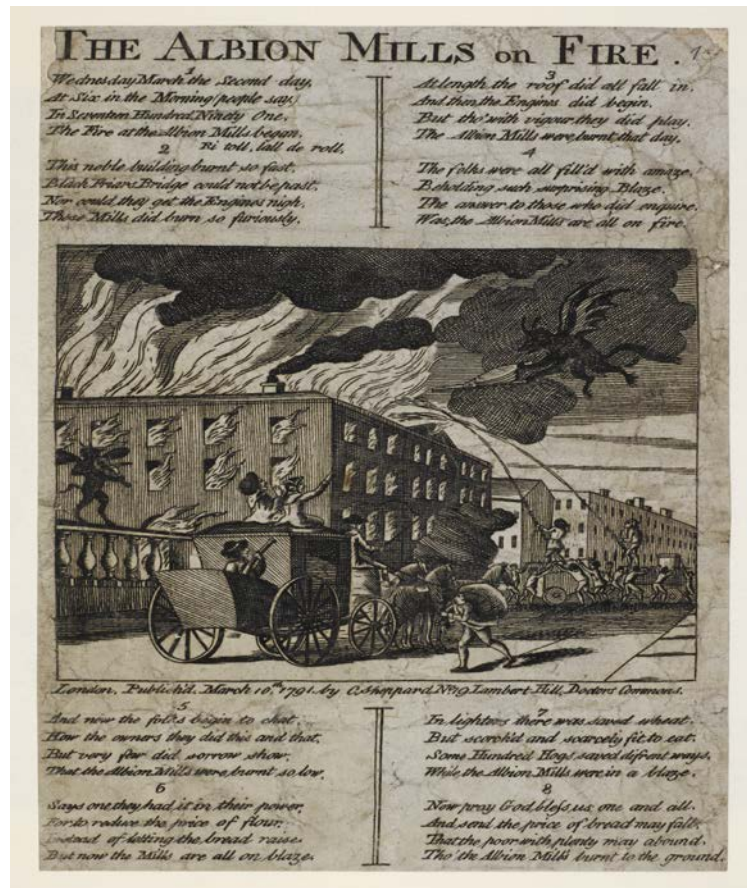 THE ALBION MILLS on FIRE.
1
Wednesday March the Second day,
At Six in the Morning (people say)
In Seventeen Hundred Ninety One.
The Fire at the Albion Mills began.
Ri toll, lall de roll.
2
This noble building burnt so fast.
Black Friars Bridge could not be past.
Nor could they get the Engines nigh.
These Mills did burn so furiously.
3
At length the roof did all fall in.
And then the Engines did begin.
But tho' with vigour they did play.
The Albion Mills were burnt that day.
4
The folks were all fill'd with amaze.
Beholding such surprising Blaze.
The answer to those who did enquire.
Was, the Albion Mills are all on fire.
London, Publish'd March 10th 1791. by C. Sheppard No 19 Lambert Hill, Doctors Commons.
5
And now the folks begin to chat.
How the owners they did this and that.
But very few did sorrow show.
That the Albion Mills were burnt so low.
6
Says one they had it in their power,
For to reduce the price of flour.
Instead of letting the bread raise.
But now the Mills are all on blaze.
7
In lighters there was saved wheat.
But scorch'd and scarcely fit to eat.
Some Hundred Hogs saved difrent ways.
While the Albion Mills were in a blaze.
8
Now pray God bless us one and all.
And send the price of bread may fall.
That the poor with plenty may abound.
Tho' the Albion Mills burnt to the ground.